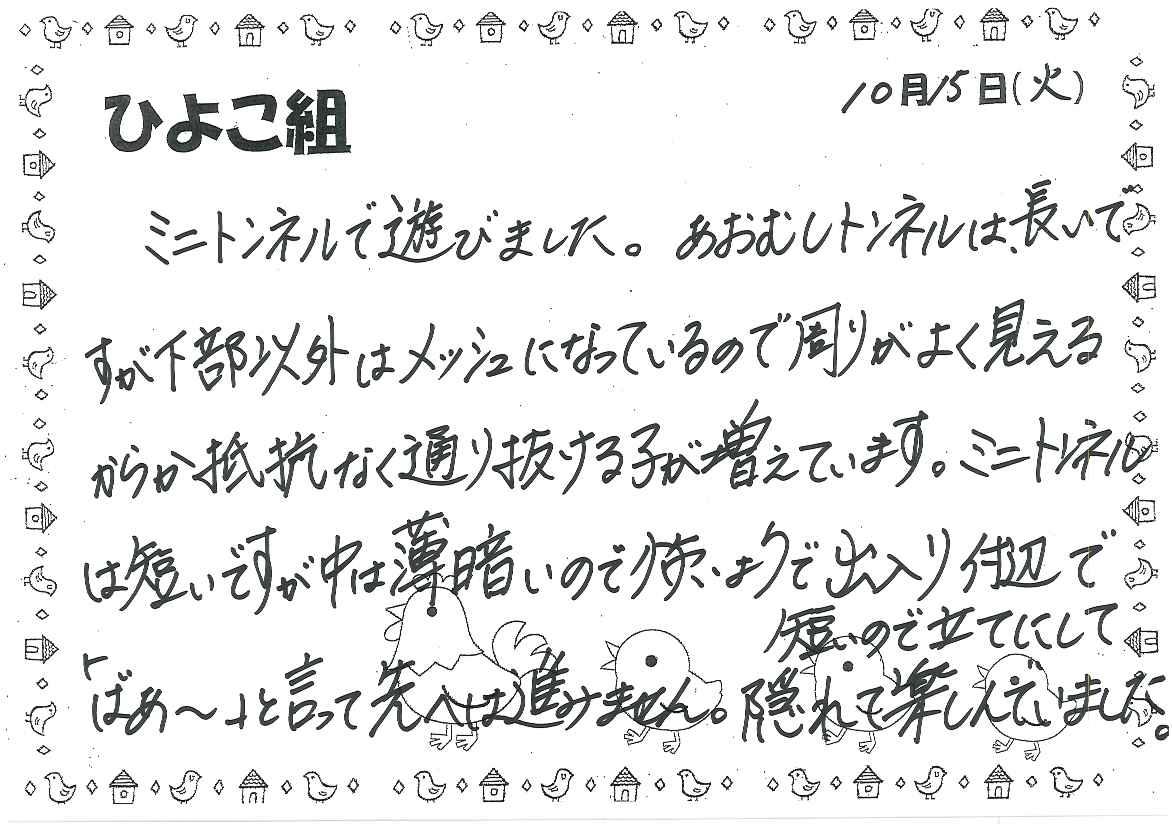 10月15日(火)
ひよこ組
ミニトンネルで遊びました。あおむしトンネルは、長いで
すが下部以外はメッシュになっているので周りがよく見える
からか抵抗なく通り抜ける子が増えています。ミニトンネル
は短いですが中は薄暗いので
で出入り付辺で
短いので立てにして
「ばあ〜」と言って先へは進みません。隠れて楽しんでいました。